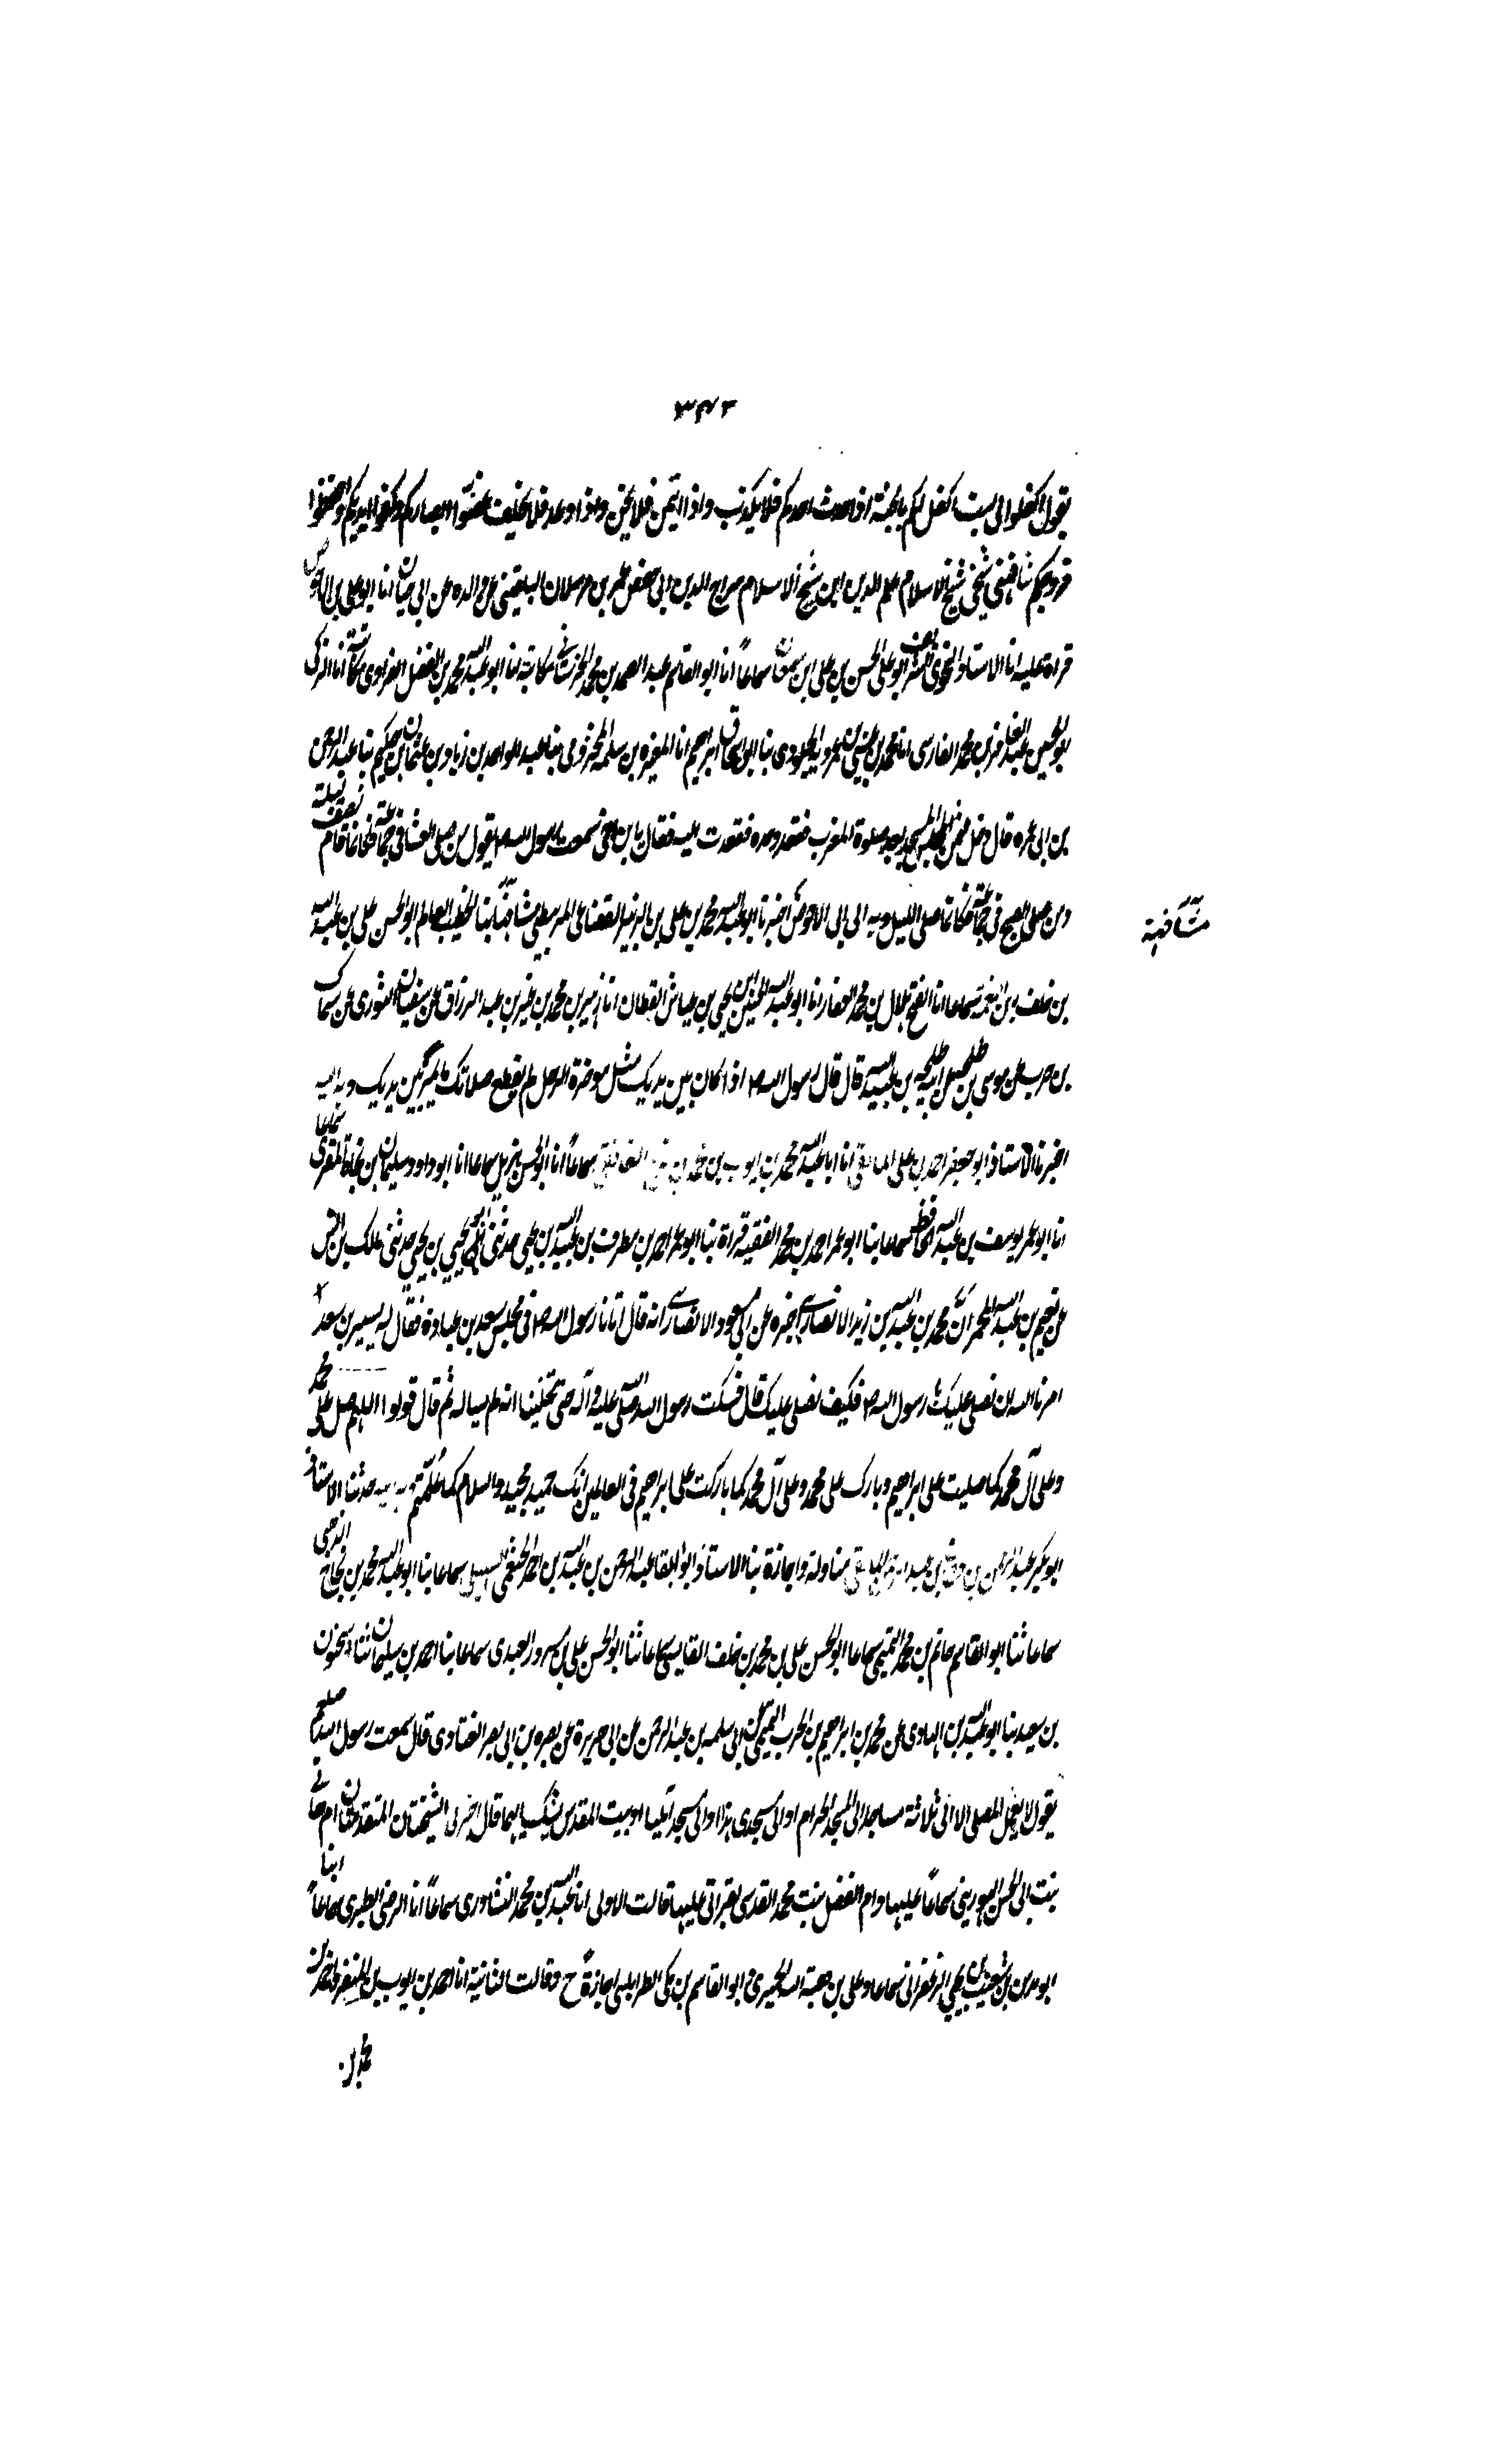 ٣٤٢
يقول اكفلوا لى بست اكفل لكم بالجنة اذا حدث احدكم فلا يكذب واذا ائتمن فلا يخن واذا وعد فلا يخلف غضوا ابصاركم وكفوا ايديكم واحفظوا
فروجكم شافهنى شيخى شيخ الاسلام علم الدين ابن شيخ الاسلام سراج الدين ابى حفص عمر بن رسلان البلقينى عن والده عن ابى حيان انا ابو على بن ابى الاحوص
قراة عليه انا الاستاذ النحوى ابو على الحسن بن على ابن سمعان سماعاً انا ابو القاسم عبد الصمد بن محمد الحرستانى مكاتبة انا ابو عبد الله محمد بن الفضل الفراوى مكاتبة انا الزكى
ابو الحسين عبد الغافر بن محمد الفارسى انا محمد بن عيسى بن عمرويه الجلودى ثنا ابو اسحاق ابراهيم انا المغيرة بن سلمه المخزومى ثنا عبد الواحد بن زياد بن عثمان بن حكيم ثنا عبد الرحمن
بن ابى عمره قال دخل عثمن المسجد بعد صلوة المغرب فقعد وحده فقعدت اليه فقال يا بن اخى سمعت رسول الله ص يقول من صلى العشا فى جماعة فكانما قام نصف ليلة
ومن صلى الصبح فى جماعة فكانما صلى الليل وبه الى ابى الاحوص اخبرنا ابو عبد الله محمد بن على بن الزبير القضاعى المربيطرى مشافهة ثنا الخطيب العالم ابو الحسن على بن عبد الله
مشافهة
بن خلف بن النعمة سماعا انا الفتح هلال بن محمد الحفار انا ابو عبد الله الحسين ابن يحيى بن عياش القطان انا زهير بن محمد بن قمير بن عبد الرزاق عن سفيان الثورى عن سماك
بن حرب عن موسى بن طلحة عن ابيه طلحه بن عبيد الله قال قال رسول الله ص اذا كان بين يديك مثل موخرة الرحل لم يقطع صلاتك ما مر بين يديك وبه اليه
اخبرنا الاستاذ ابو جعفر احمد بن على المالقى انا ابا عبد الله محمد بن ايوب بن محمد بن نوح الغافقى سماعاً انا ابو الحسن هذيل سماعا انا ابو داود سليمان بن نجاة المقرى سماعا
انا ابو عمر يوسف بن عبد الله الحافظ سماعا ثنا ابو عمر احمد بن محمد الفقيه قراة ثنا ابو عمر احمد بن مطرف بن عبد الله بن يحيى حدثنى ابى يحيى بن يحيى حدثنى مالك بن انس
عن نعيم بن عبد الله المجمر ان محمد بن عبد الله بن زيد الانصارى اخبره عن ابى مسعود الانصارى انه قال اتانا رسول الله ص فى مجلس سعد بن عبادة فقال له بسير بن سعد
امرنا الله ان نصلى عليك يا رسول الله ص فكيف نصلى عليك قال فسكت رسول الله صلى الله عليه وآله حتى تمنينا انه لم يساله ثم قال قولوا اللهم صل على محمد
وعلى آل محمد كما صليت على ابراهيم وبارك على محمد وعلى آل محمد كما باركت على ابراهيم فى العالمين انك حميد مجيد والسلام كما علمتم وبه اليه حدثنا الاستاذ
ابو بكر عبد الرحمن بن المالقى مناولة واجازة ثنا الاستاذ ابو القا عبد الرحمن بن عبد الله بن احمد الخثعمى السهيلى سماعا ثنا ابو عبد الله محمد بن نجاح الذهبى
سماعا ثنا ابو القاسم حاتم بن محمد التميمى سماعا ابو الحسن على بن محمد بن خلف القابسى سماعا ثنا ابو الحسن على بن مسرور العبدى سماعا ثنا احمد بن سليمان ثنا سحنون
بن سعيد ثنا ابو عبد الله بن الهادى عن محمد بن ابراهيم بن الحرب التميمى عن ابى سلمه بن عبد الرحمن عن ابى هريرة عن بصره بن ابى بصر الغفارى قال سمعت رسول الله صلعم
يقول لا يعمل المطى الا الى ثلاثة مساجد الى المسجد الحرام او الى مسجدى هذا او الى مسجد ايليا او بيت المقدس يشك ايهما قال اخبرنى الشيختان المتقدمتان ام هانى
بنت ابى الحسن الهورينى سماعاً عليها وام الفضل بنت محمد القدسى بقراتى عليها قالت الاولى انا عبد الله بن محمد النشاورى سماعاً انا الرضى الطبرى سماعاً انبا
ابو مدين بن شعيب بن يحيى الزعفرانى سماعا وعلى بن هبة الله الحميرى و ابو القاسم بن مكى الطرابلسى اجازة ح وقالت الثانية انا احمد بن ايوب بن المنفر انا محمد بن
محمد بن